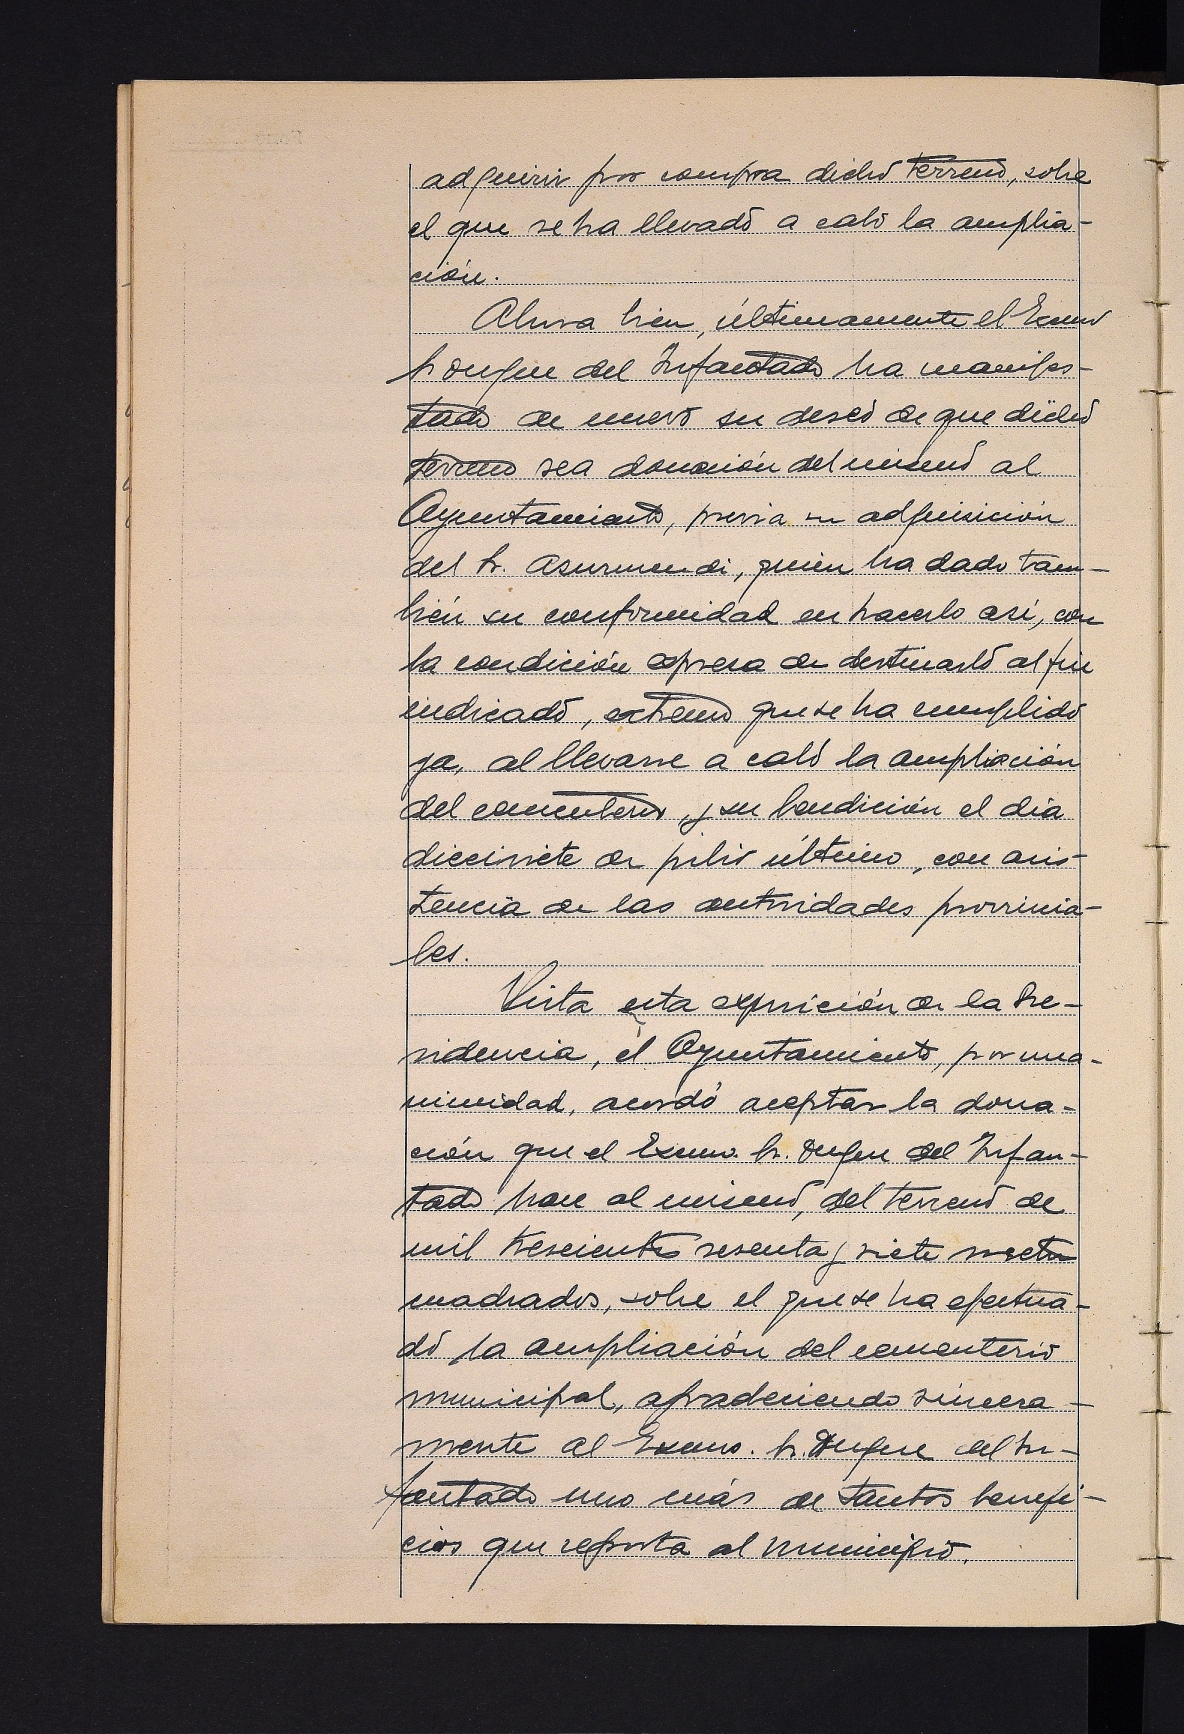 adquirir por compra dicho terreno, sobre
el que se ha llevado a cabo la amplia-
ción.
Ahora bien, últimamente el Excmo
Sr Duque del Infantado ha manifes-
tado de nuevo su deseo de que dicho
terreno sea donación del mismo al
Ayuntamiento, previa su adquisición
del Sr. Asurmendi, quien ha dado tam-
bién su conformidad en hacerlo así, con
la condición expresa de destinarlo al fin
indicado, extremo que se ha cumplido
ya, al llevarse a cabo la ampliación
del cementerio, y su bendición el día
diecisiete de julio último, con asis-
tencia de las autoridades provincia-
les.
Vista esta exposición de la Pre-
sidencia, el Ayuntamiento, por una-
nimidad, acordó aceptar la dona-
ción que el Excmo. Sr. Duque del Infan-
tado hace al mismo, del terreno de
mil trescientos sesenta y siete metros
cuadrados, sobre el que se ha efectua-
do la ampliación del cementerio
municipal, agradeciendo sincera-
mente al Excmo. Sr. Duque del In-
fantado uno más de tantos benefi-
cios que reporta al municipio.